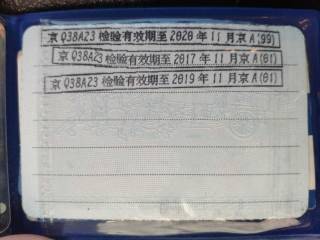 京Q38A23检验有效期至2020年11月京A(99)
京Q38A23检验有效期至2017年11月京A(01)
京Q38A23检验有效期至2019年11月京A(01)